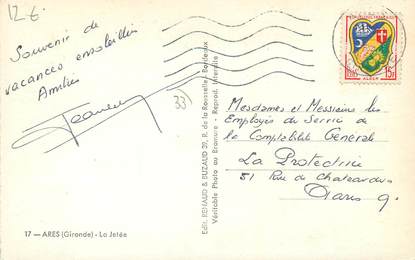 12 €
Souvenir de
vacances ensoleillées
Amitiés
33
Mesdames et Messieurs les
Employés du Service de
la Comptabilité Générale
La Protectrice
51 Rue de Chateaudun
Paris 9.
Edit. RENAUD & BUZAUD 39, R. de la Rousselle, Bordeaux
Véritable Photo au Bromure - Reprod. Interdite
17 — ARES (Gironde) - La Jetée
15F
ALGER